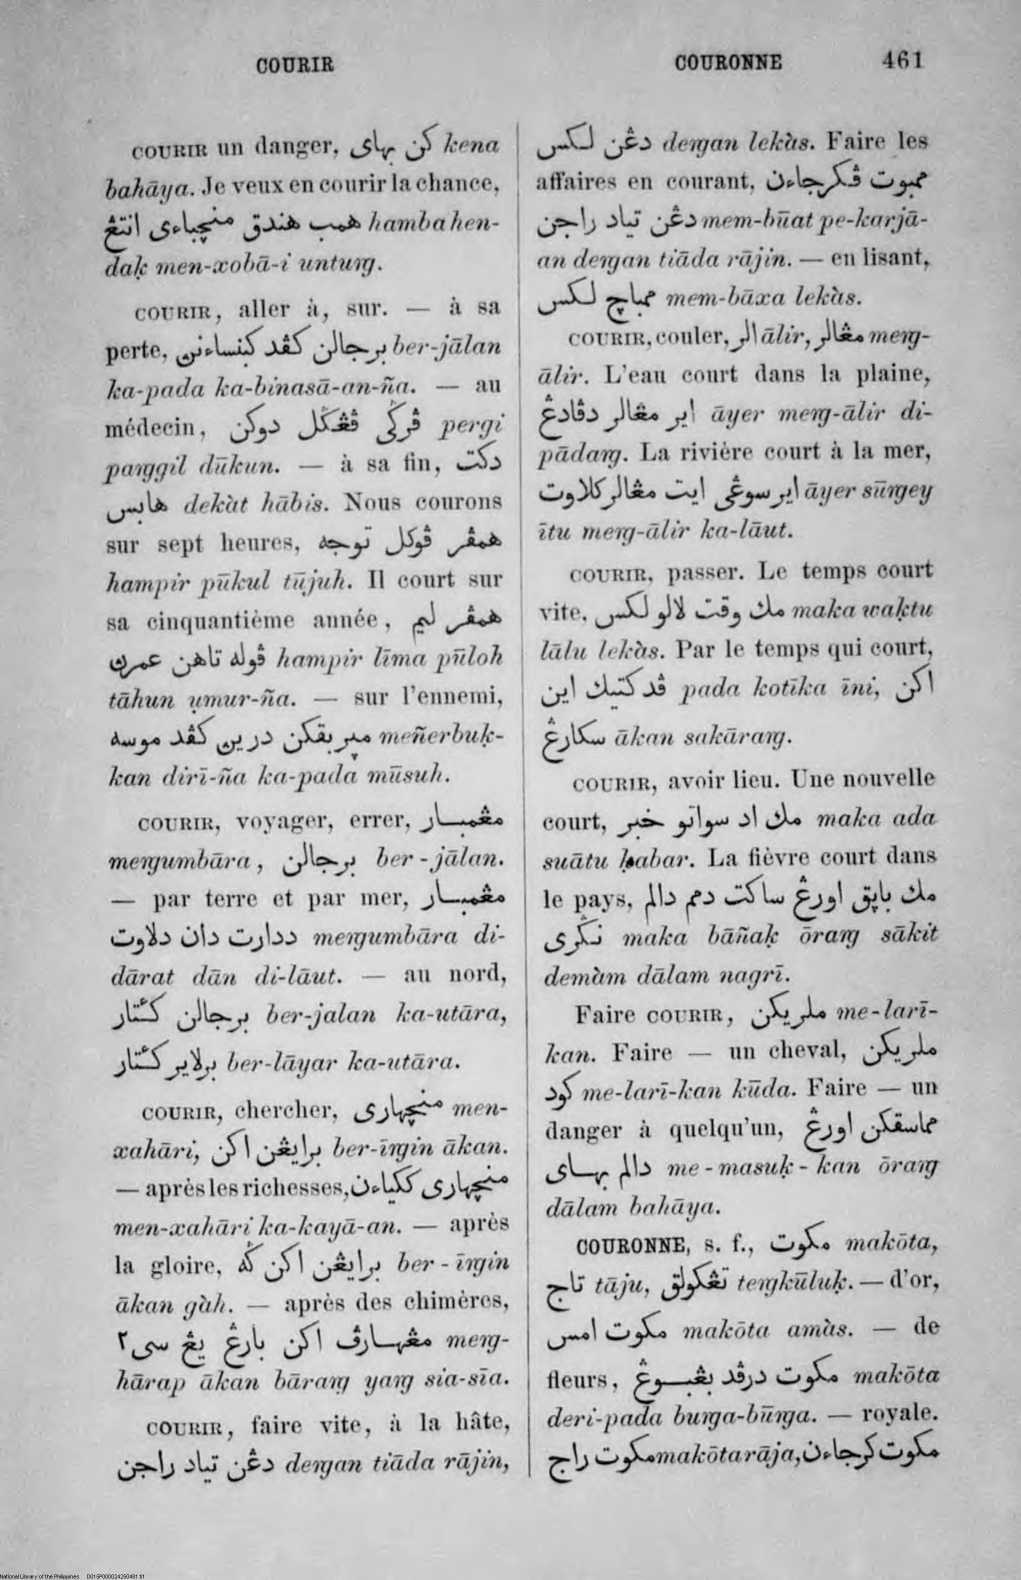 COURIR
COURONNE 461
COURIR un danger, کن بهاى kena
bahāya. Je veux en courir la chance,
همب هندق منچباءى انتڠ hamba hen-
daḳ men-xobā-i untuŋg.
COURIR, aller à, sur. — à sa
perte, برجالن كڤد كبنساءنڽ ber-jālan
ka-pada ka-binasā-an-ña. — au
médecin, ڤرڬي ڤڠݢل دوكن pergi
paŋggil dūkun. — à sa fin, دكت
هابس dekàt hābis. Nous courons
sur sept heures, همڤر ڤوكل توجه
hampir pūkul tūjuh. Il court sur
sa cinquantième année, همڤر ليم
ڤوله تاهن عمرڽ hampir līma pūloh
tāhun ụmur-ña. — sur l'ennemi,
مڽربقكن دريڽ كڤد موسه meñerbuḳ-
kan dirī-ña ka-pada mūsuh.
COURIR, voyager, errer, مڠمبار
meŋgumbāra, برجالن ber-jālan.
— par terre et par mer, مڠمبار
ددارت دان دلاوت meŋgumbāra di-
dārat dān di-lāut. — au nord,
برجالن كئتار ber-jalan ka-utāra,
برلاير كئتار ber-lāyar ka-utāra.
COURIR, chercher, منچهارى men-
xahāri, برايڠن اكن ber-īŋgin ākan.
— après les richesses, منچهارى ككياءن
men-xahāri ka-kayā-an. — après
la gloire, برايڠن اكن ݢه ber-īŋgin
ākan gàh. — après des chimères,
مڠهارڤ اكن بارڠ يڠ سى٢ meŋg-
hārap ākan bāraŋg yaŋg sia-sīa.
COURIR, faire vite, à la hâte,
دڠن تياد راجن deŋgan tiāda rājin,
دڠن لكس deŋgan lekàs. Faire les
affaires en courant, ممبوت ڤكرجاءن
دڠن تياد راجن mem-būat pe-karjā-
an deŋgan tiāda rājin. — en lisant,
ممباچ لكس mem-bāxa lekàs.
COURIR, couler, الر ālir, مڠالر meŋg-
ālir. L'eau court dans la plaine,
اير مڠالر دڤادڠ āyer meŋg-ālir di-
pādaŋg. La rivière court à la mer,
اير سوڠى ايت مڠالر كلاوت āyer sūŋgey
ītu meŋg-ālir ka-lāut.
COURIR, passer. Le temps court
vite, مك وقت لالو لكس maka waḳtu
lālu lekàs. Par le temps qui court,
ڤد كتيك اين pada kotīka īni, اكن
سكارڠ ākan sakāraŋg.
COURIR, avoir lieu. Une nouvelle
court, مك اد سواتو خبر maka ada
suātu ḥabar. La fièvre court dans
le pays, مك باڽق اورڠ ساكت دمم دالم
نݢرى maka bāñaḳ ōraŋg sākit
demàm dālam nagrī.
Faire COURIR, ملريكن me-larī-
kan. Faire — un cheval, ملريكن
كود me-larī-kan kūda. Faire — un
danger à quelqu'un, مماسقكن اورڠ
دالم بهاى me-masuḳ-kan ōraŋg
dālam bahāya.
COURONNE, s. f., مكوت makōta,
تاج tāju, تڠكولق teŋgkūluḳ. — d'or,
مكوت امس makōta amàs. — de
fleurs, مكوت درڤد بڠبوڠ makōta
deri-pada buŋga-būŋga. — royale.
مكوت راج makōta rāja, مكوت كرجاءن
National Library of the Philippines